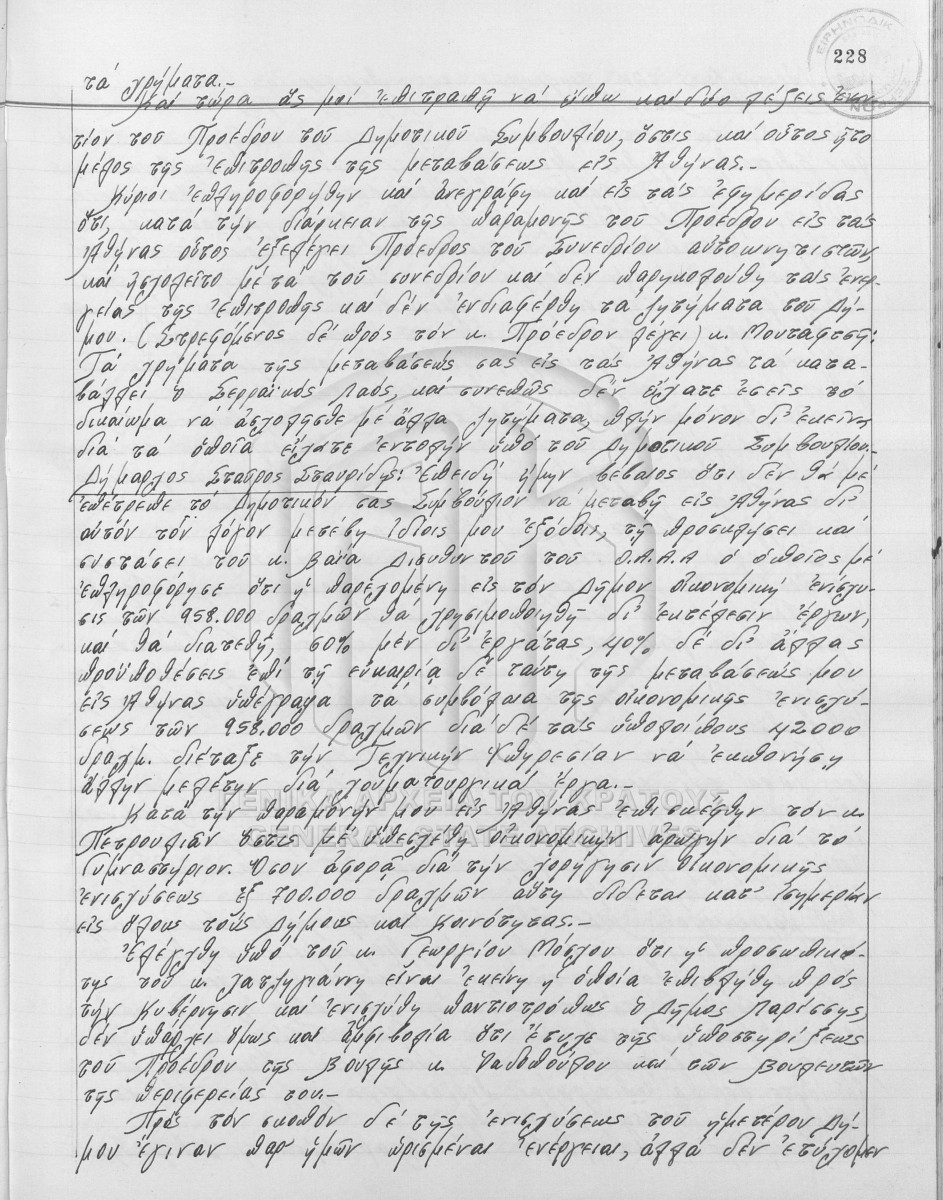 228
τά χρήματα.-
Καί τώρα ἄς μοί ἐπιτραπῇ νά εἴπω καί δύο λέξεις ἐναν-
τίον τοῦ Προέδρου τοῦ Δημοτικοῦ Συμβουλίου, ὅστις καί οὗτος ἦτο
μέλος τῆς ἐπιτροπῆς τῆς μεταβάσεως εἰς Ἀθήνας.-
Κύριοι ἐπληροφορήθην καί ἀνεγράφη καί εἰς τάς ἐφημερίδας
ὅτι, κατά τήν διάρκειαν τῆς παραμονῆς τοῦ Προέδρου εἰς τάς
Ἀθήνας οὗτος ἐξελέγει Πρόεδρος τοῦ Συνεδρίου αὐτοκινητιστῶν
καί ἠσχολεῖτο μετά τοῦ συνεδρίου καί δέν παρηκολούθη τάς ἐνερ-
γείας τῆς ἐπιτροπῆς καί δέν ἐνδιαφέρθη τά ζητήματα τοῦ Δή-
μου. (Στρεφόμενος δέ πρός τόν κ. Πρόεδρον λέγει) κ. Μουταφτσῆ:
Τά χρήματα τῆς μεταβάσεώς σας εἰς τάς Ἀθήνας τά κατα-
βάλλει ὁ Σερραϊκός Λαός, καί συνεπῶς δέν εἴχατε ἐσεῖς τό
δικαίωμα νά ἀσχολῆσθε μέ ἄλλα ζητήματα, πλήν μόνον δι' ἐκεῖνα
διά τά ὁποῖα εἴχατε ἐντολήν ὑπό τοῦ Δημοτικοῦ Συμβουλίου.-
Δήμαρχος Σταῦρος Σταυρίδης: Ἐπειδή ἤμην βέβαιος ὅτι δέν θά μέ
ἐπέτρεπε τό Δημοτικόν σας Συμβούλιον νά μεταβῶ εἰς Ἀθήνας δι'
αὐτόν τόν λόγον μετέβην ἰδίοις μου ἐξόδοις, τῇ προσκλήσει καί
συστάσει τοῦ κ. Βάϊα Διευθυντοῦ τοῦ Ο.Α.Α.Α ὁ ὁποῖος μέ
ἐπληροφόρησε ὅτι ἡ παρεχομένη εἰς τόν Δῆμον οἰκονομική ἐνίσχυ-
σις τῶν 958.000 δραχμῶν θά χρησιμοποιηθῇ δι' ἐκτέλεσιν ἔργων,
καί θά διατεθῇ, 60% μέν δι' ἐργάτας, 40% δέ δι' ἄλλας
προϋποθέσεις ἐπί τῇ εὐκαιρίᾳ δέ ταύτῃ τῆς μεταβάσεώς μου
εἰς Ἀθήνας ὑπέγραψα τά συμβόλαια τῆς οἰκονομικῆς ἐνισχύ-
σεως τῶν 958.000 δραχμῶν διά δέ τάς ὑπολοίπους 42000
δραχμ. διέταξε τήν Τεχνικήν Ὑπηρεσίαν νά ἐκπονήσῃ
ἄλλην μελέτην διά χωματουργικά ἔργα.-
Κατά τήν παραμονήν μου εἰς Ἀθήνας ἐπισκέφθην τόν κ.
Πετρουλιάν ὅστις μέ ὑπεσχέθη οἰκονομικήν ἀρωγήν διά τό
Γυμναστήριον. Ὅσον ἀφορᾷ διά τήν χορήγησιν οἰκονομικῆς
ἐνισχύσεως ἐξ 700.000 δραχμῶν αὕτη δίδεται κατ' ἰσημερίαν
εἰς ὅλους τούς Δήμους καί Κοινότητας.-
Ἐλέχθη ὑπό τοῦ κ. Γεωργίου Μόσχου ὅτι ἡ προσωπικό-
της τοῦ κ. Χατζηγιάννη εἶναι ἐκείνη ἡ ὁποία ἐπεβλήθη πρός
τήν Κυβέρνησιν καί ἐνισχύθη παντιοτρόπως ὁ Δῆμος Λαρίσσης,
δέν ὑπάρχει ὅμως καί ἀμφιβολία ὅτι ἔτυχε τῆς ὑποστηρίξεως
τοῦ Προέδρου τῆς Βουλῆς κ. Ροδοπούλου καί τῶν Βουλευτῶν
τῆς περιφερείας του.-
Πρός τόν σκοπόν δέ τῆς ἐνισχύσεως τοῦ ἡμετέρου Δή-
μου ἔγιναν παρ' ἡμῶν ὡρισμέναι ἐνέργειαι, ἀλλά δέν ἐτύχομεν
ΓΕΝΙΚΑ ΑΡΧΕΙΑ ΤΟΥ ΚΡΑΤΟΥΣ
GENERAL STATE ARCHIVES